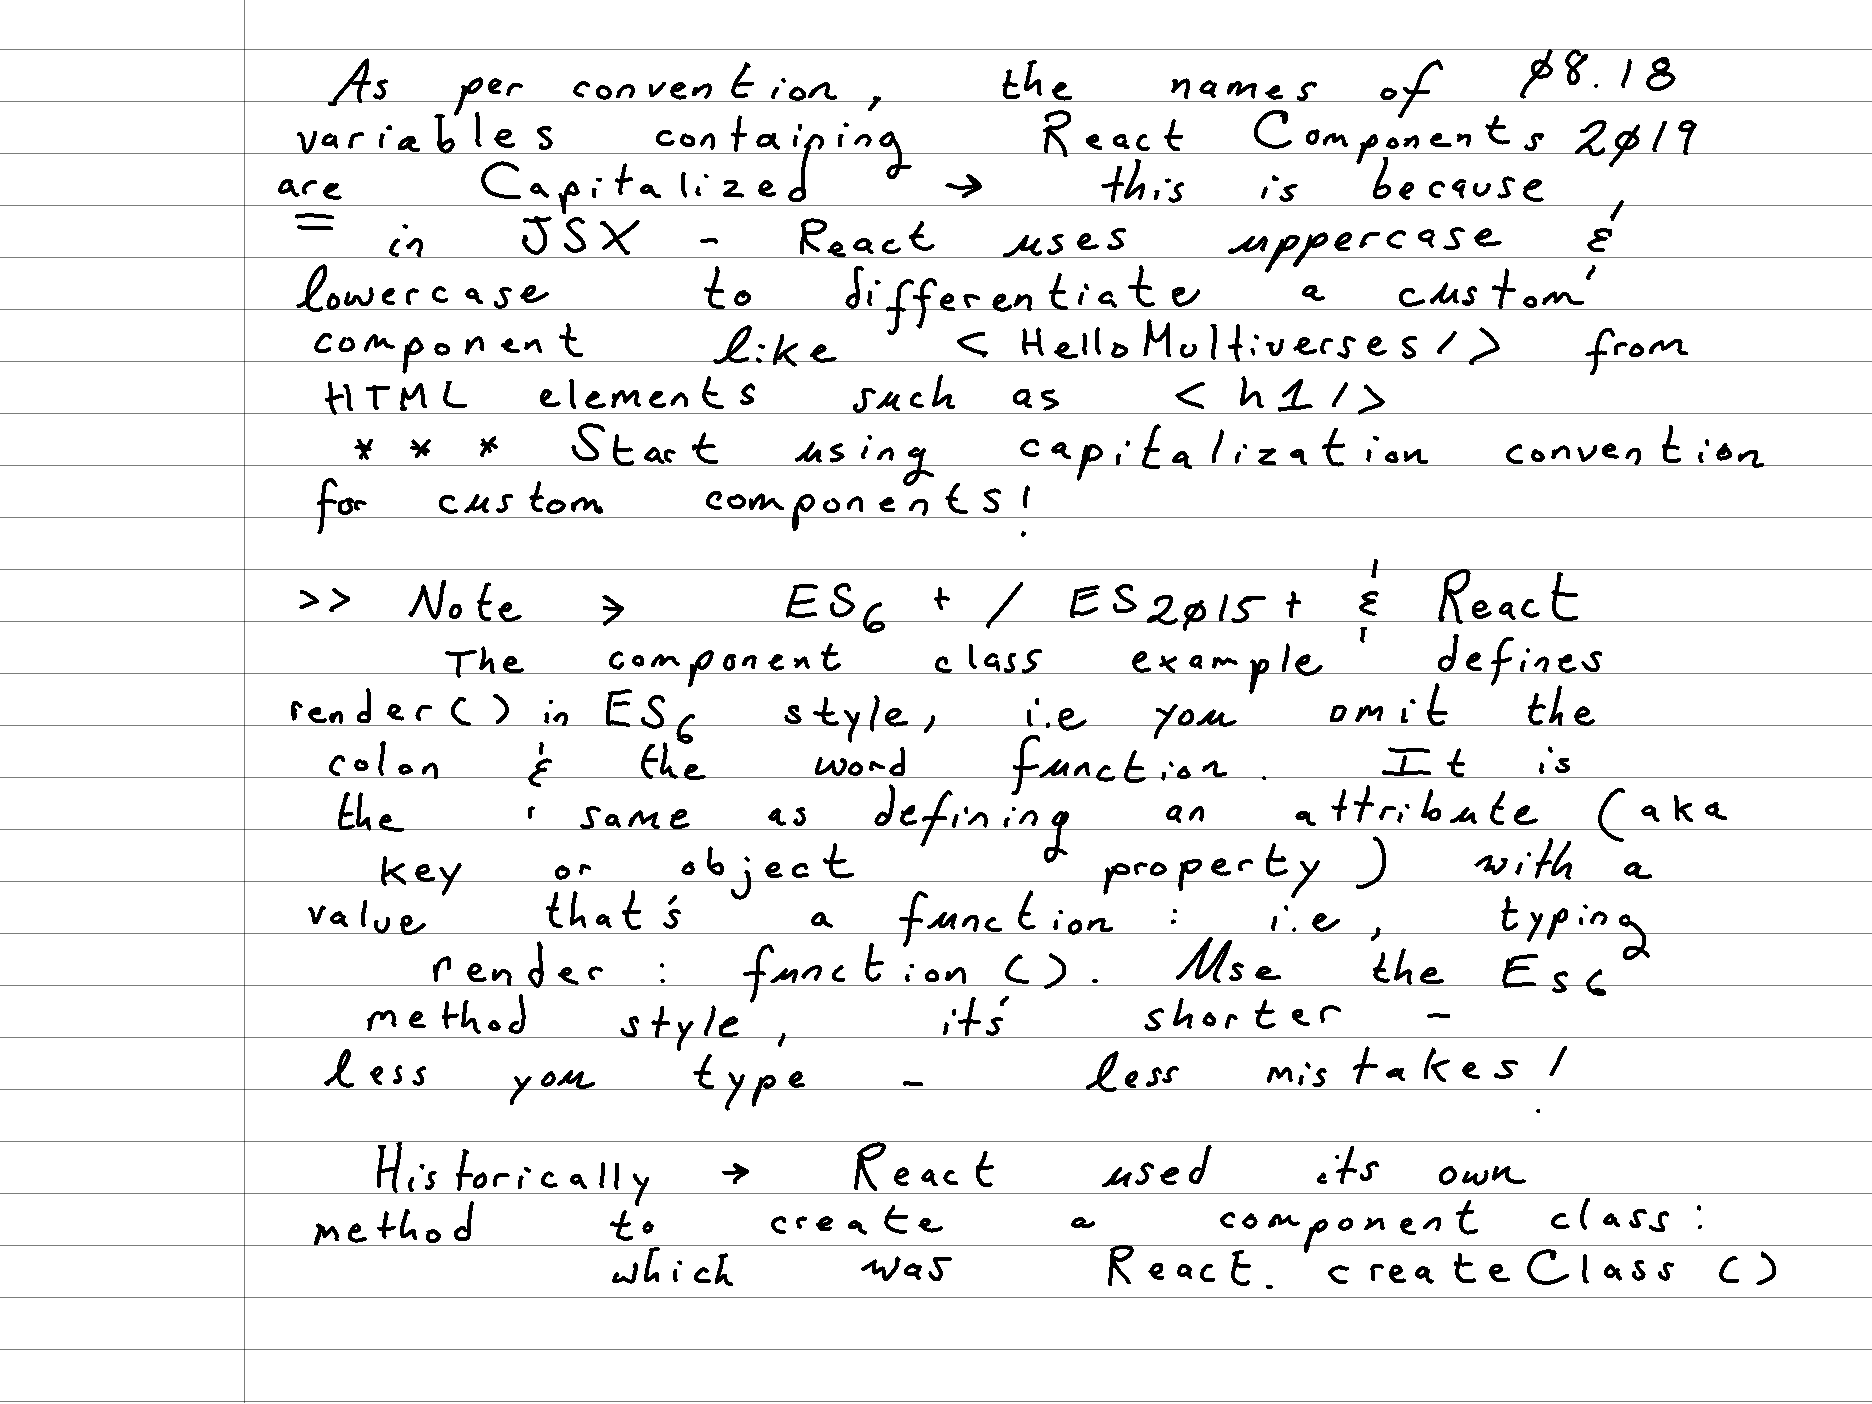 As per convention, the names of ø8.18
variables containing React Components 2ø19
are Capitalized → this is because
in JSX - React uses uppercase &
lowercase to differentiate a custom
component like <HelloMultiverses/> from
HTML elements such as <h1/>
* * * Start using capitalization convention
for custom components!
>> Note → ES6 + / ES2ø15 + & React
The component class example defines
render() in ES6 style, i.e you omit the
colon & the word function. It is
the same as defining an attribute (aka
key or object property) with a
value that's a function : i.e, typing
render : function (). Use the ES6
method style, it's shorter -
less you type - less mistakes!
Historically → React used its own
method to create a component class:
which was React. createClass ()